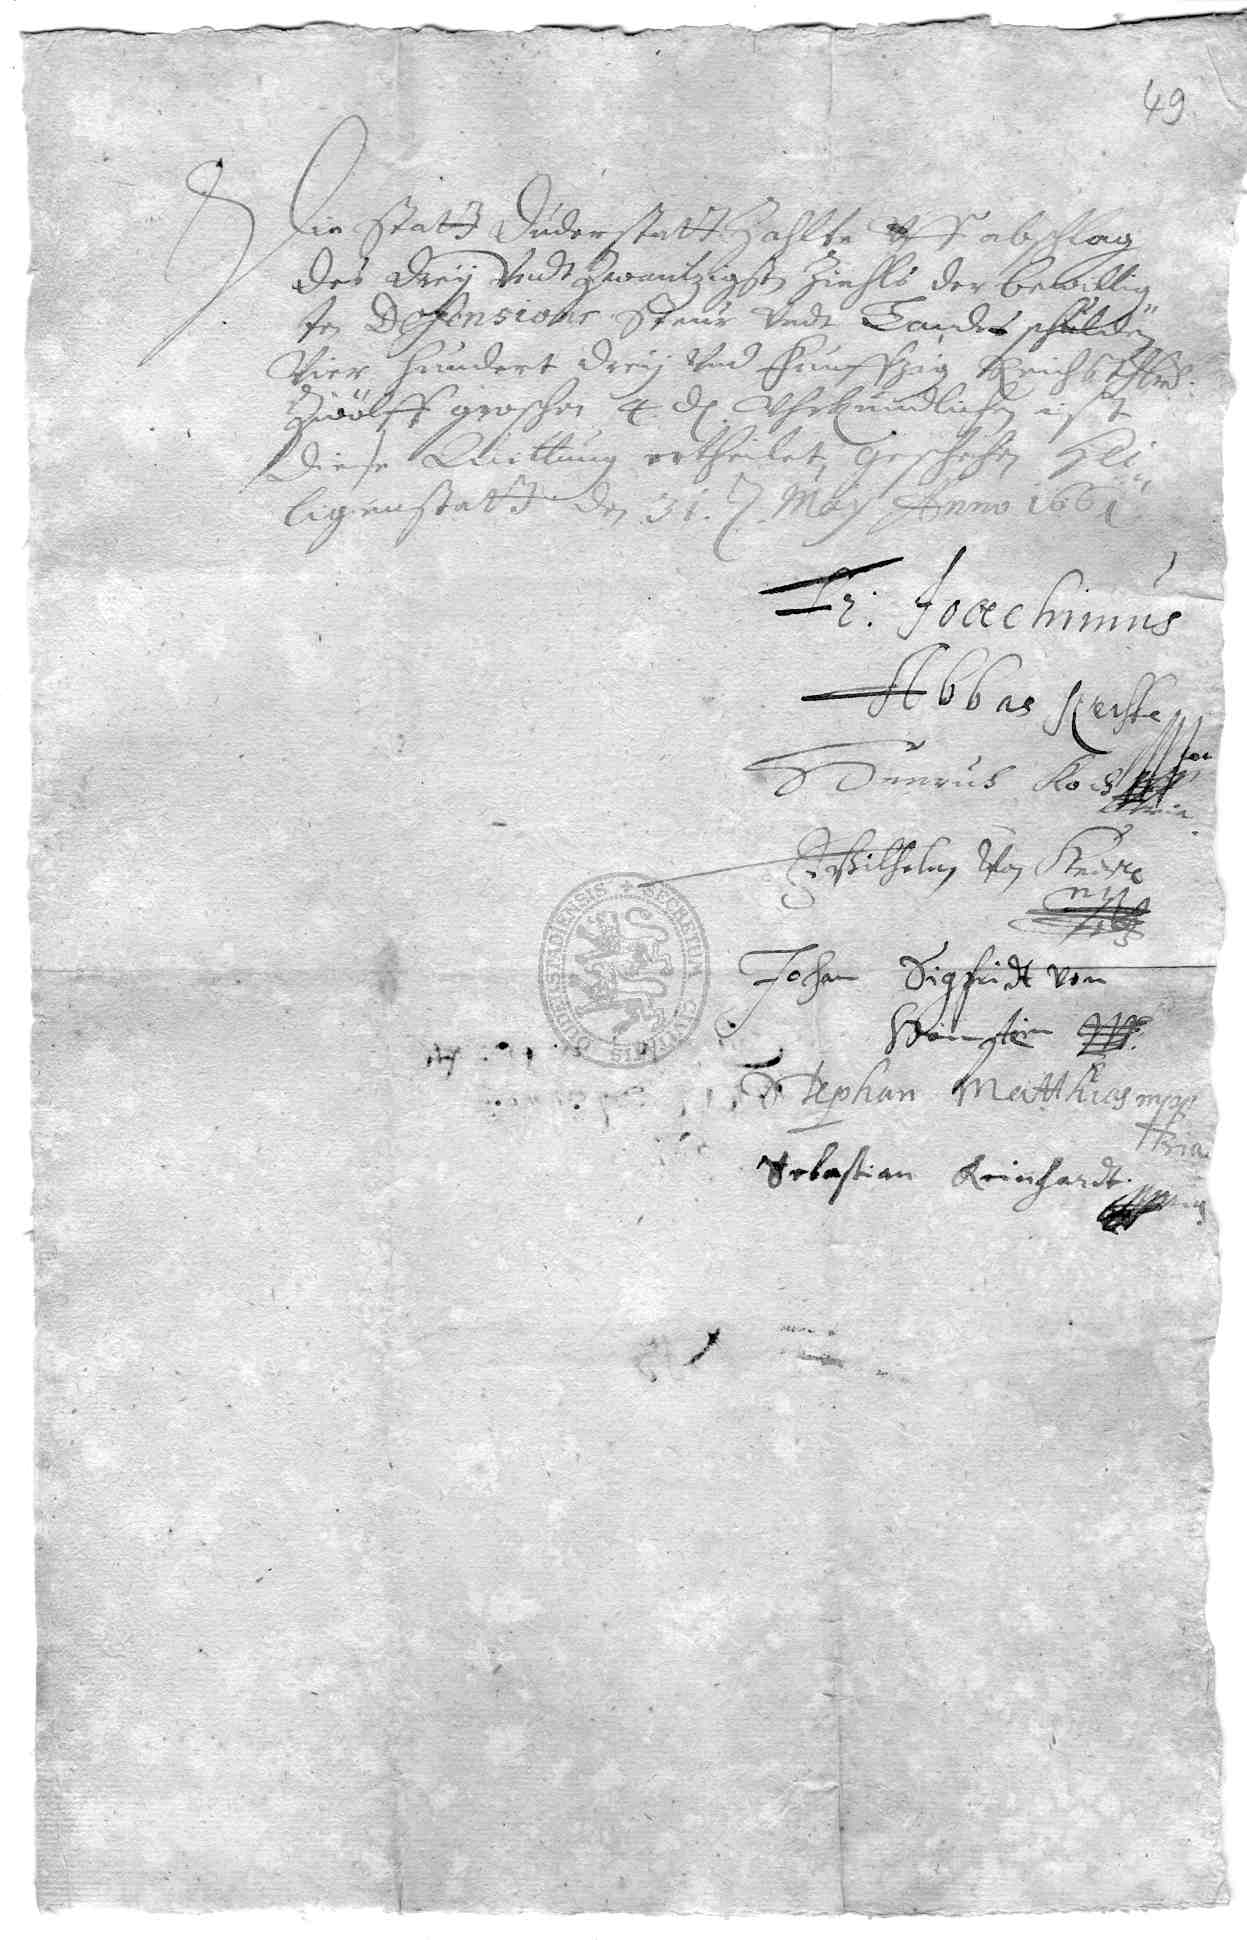 49
Die Statt Duderstatt Zahlte Uff abschlag
des dreÿ Undt Zwantzigsten Ziehls der bewillig
ten Defensions Steur Undt Landes schulden
Vier hundert dreÿ Und funffzig Reichsthlr.
Zwölff groschen 4 d. Uhrkundlichen ist
diese Quittung ertheilet, Geschehen Hei
ligenstatt den 31. Maÿ Anno 1661
Fr. Joachimus
Abbas
Henricus Koch
Wilhelm Von
Johan Sigfridt von
Stephan Matthias mpp
ria
Sebastian Reinhardt
SECRETUM CIVITATIS DUDERSTADIENSIS